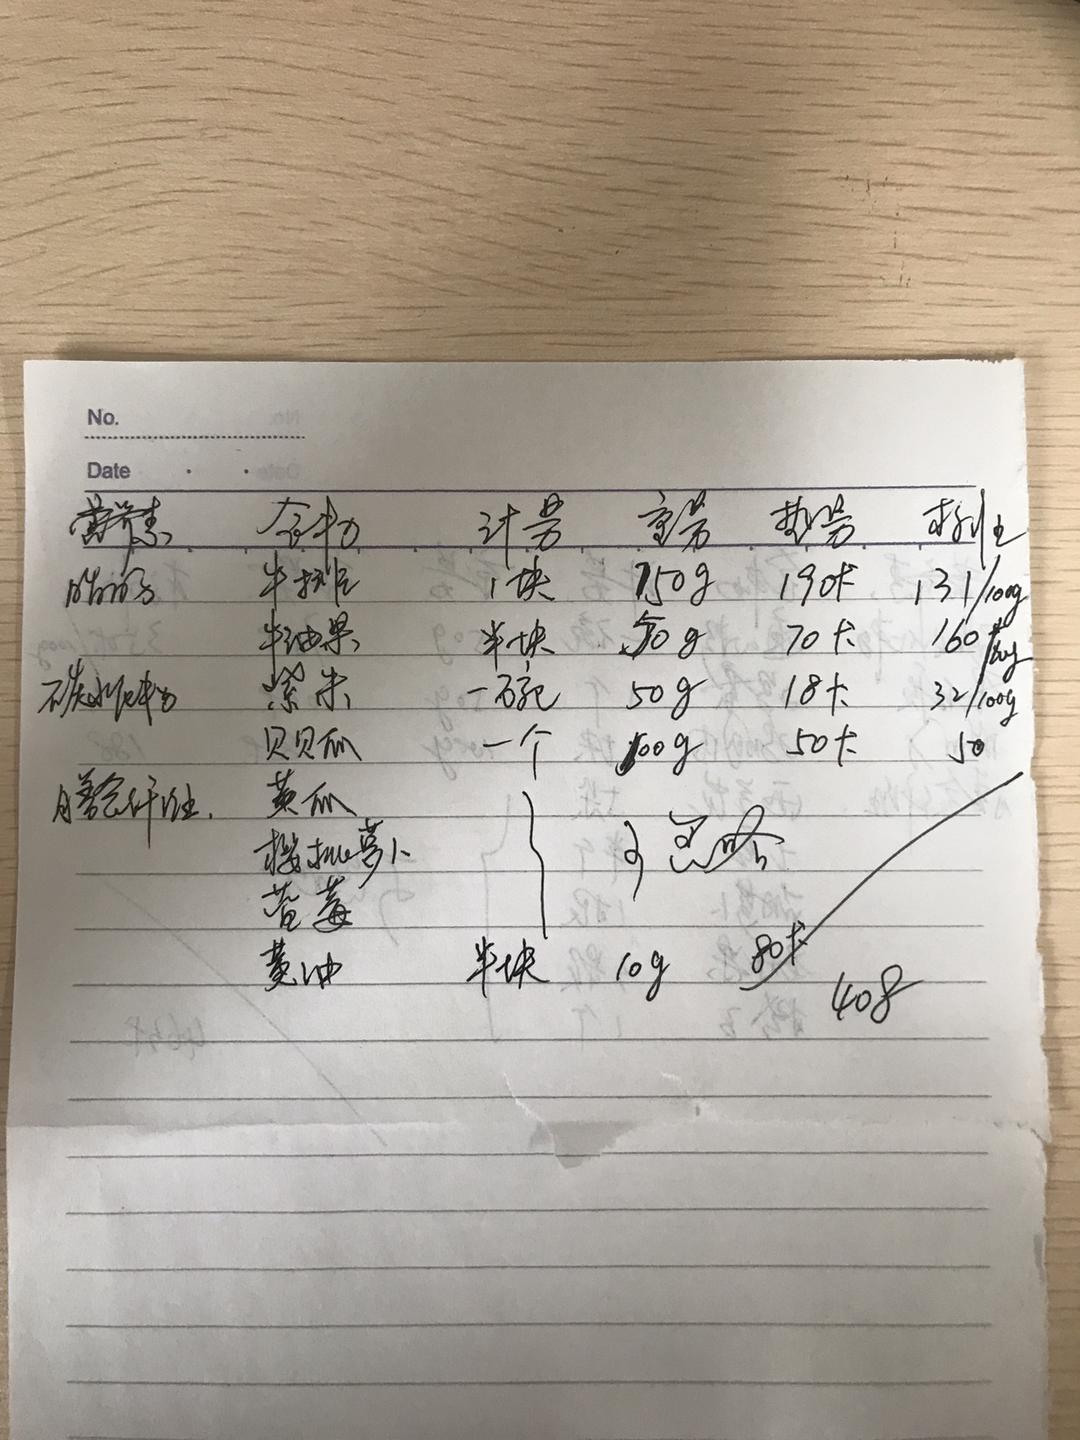 No.
Date
营养素 食物 计量 重量 热量 标准
脂肪 牛排 1块 150g 190卡 131/100g
牛油果 半块 50g 70卡 160/100g
碳水化合物 紫米 一碗 50g 18卡 32/100g
贝贝瓜 一个 100g 50卡 50
膳食纤维. 黄瓜 可忽略
樱桃萝卜
蓝莓
黄油 半块 10g 80卡
408